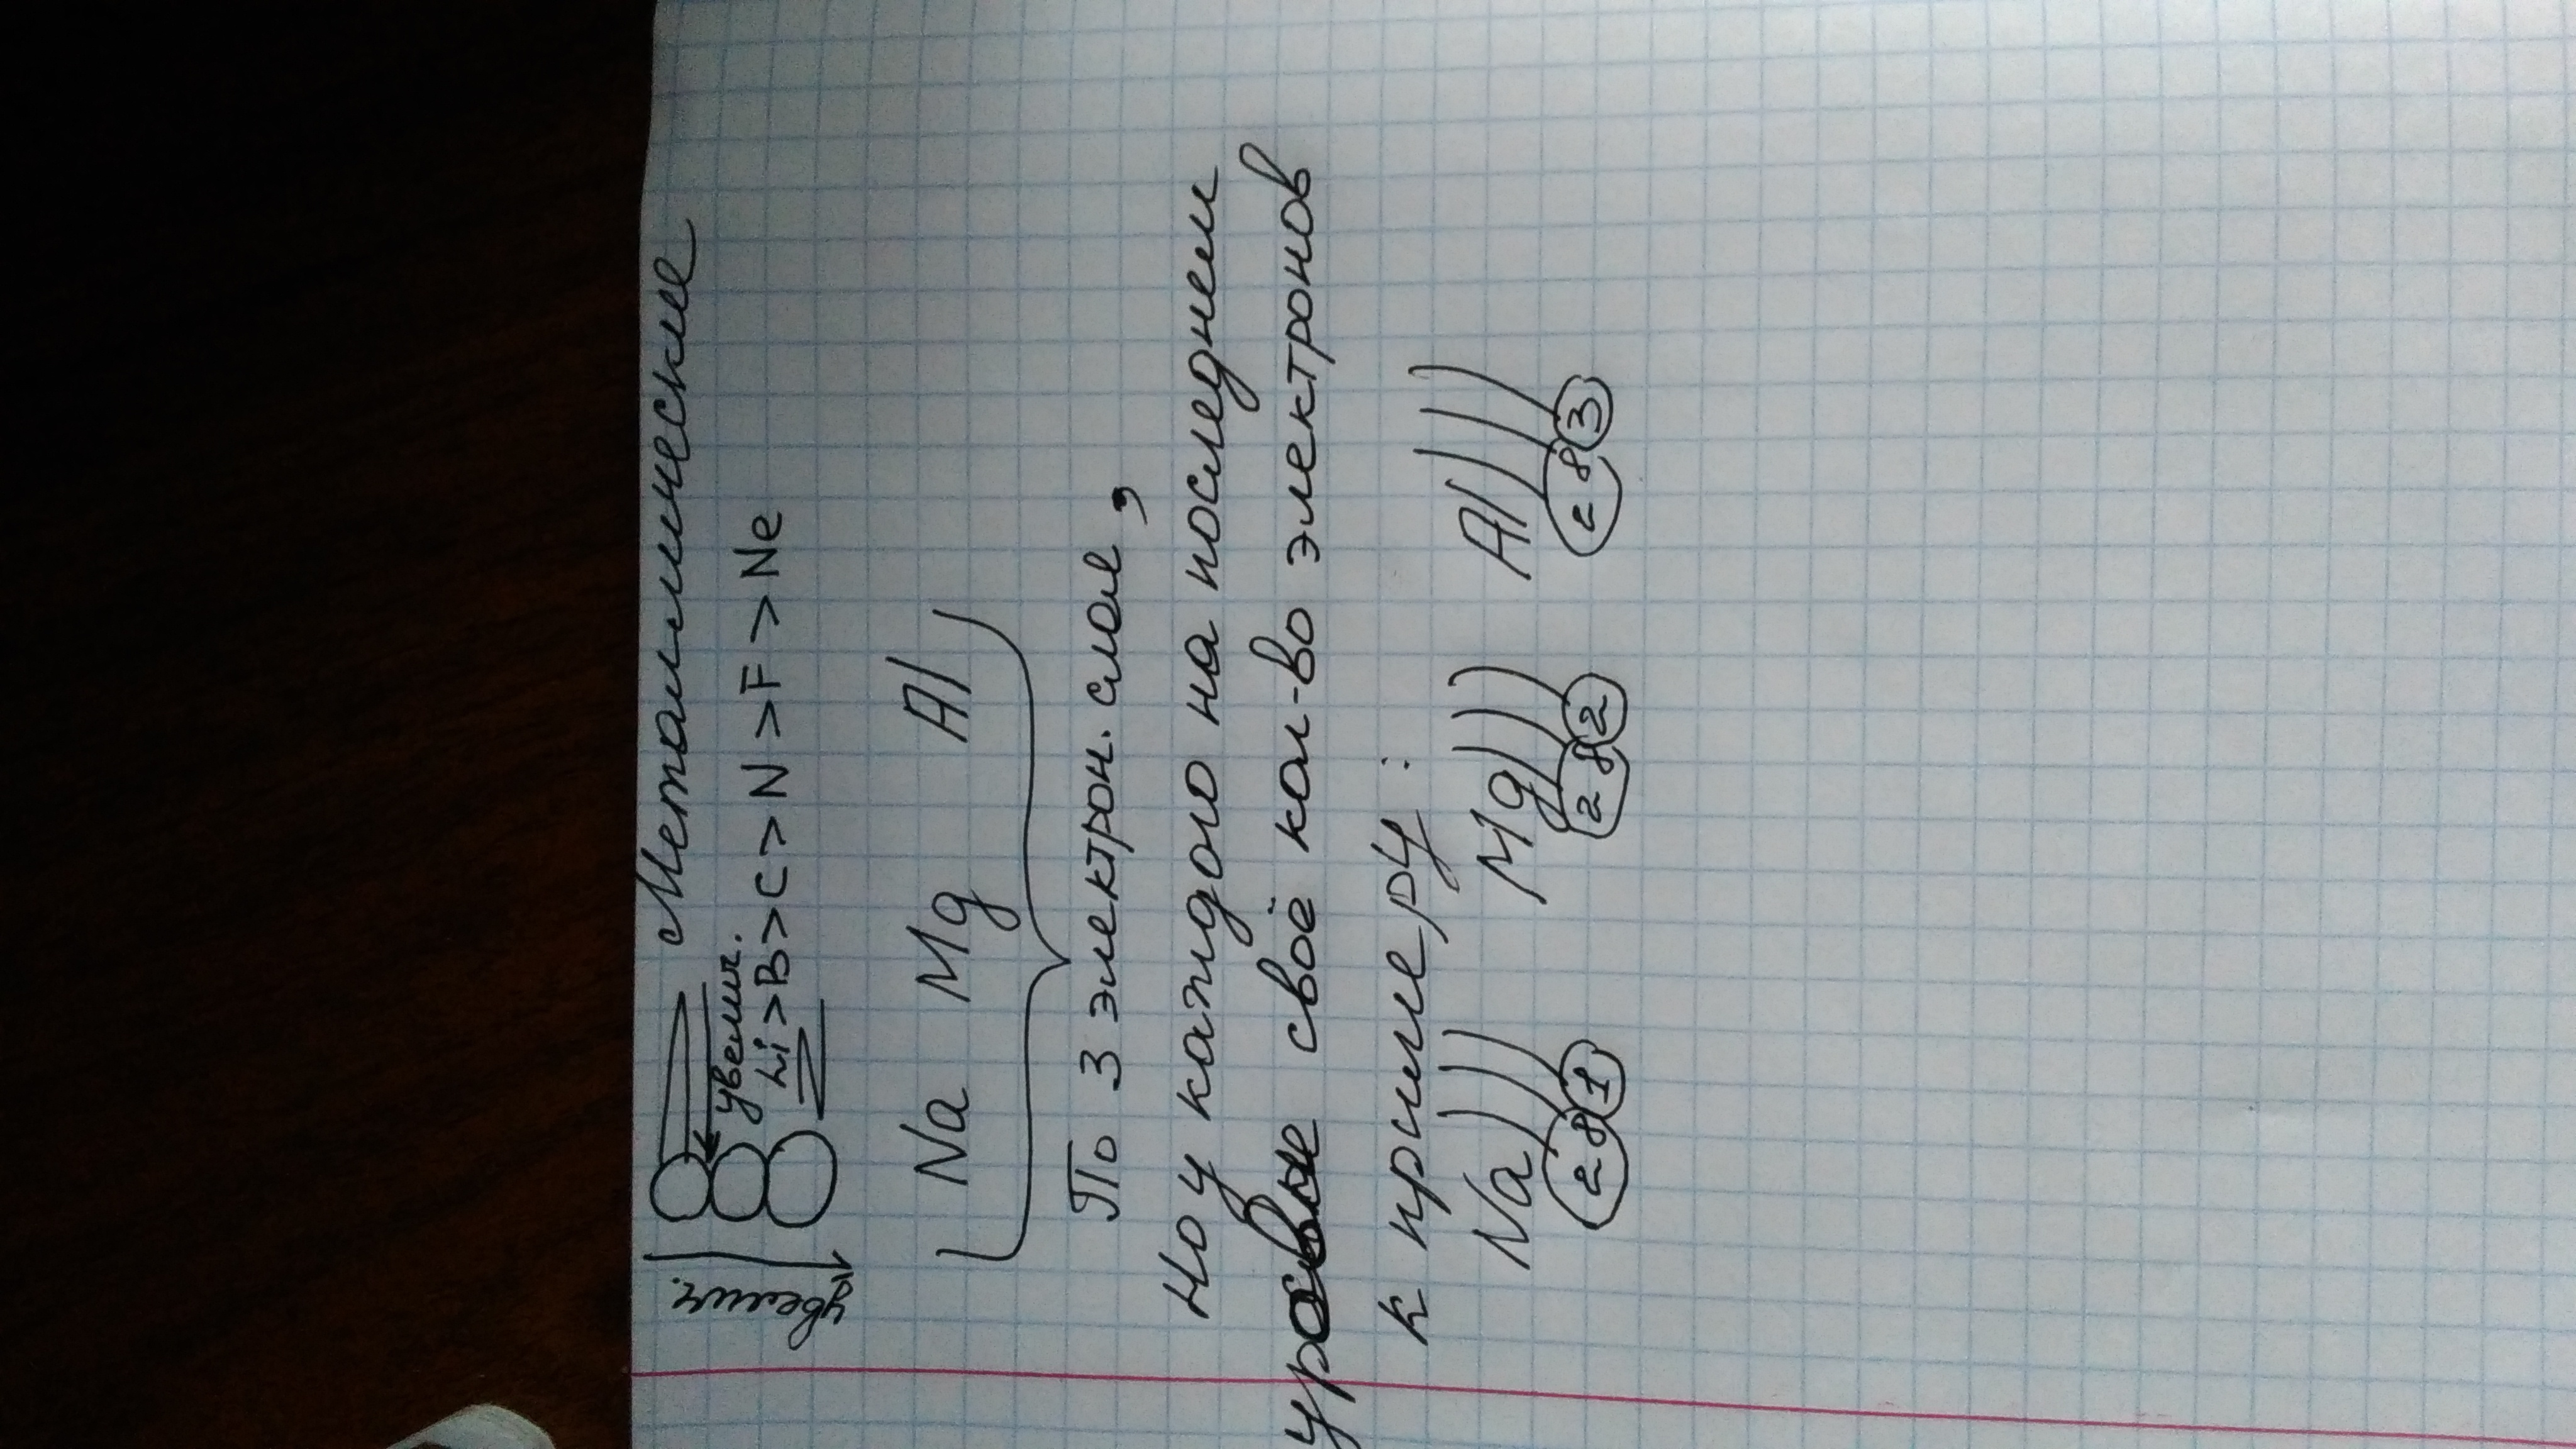 Металлические
увелич.
увелич.
Li>B>C>N>F>Ne
Na Mg Al
По 3 электрон. слоя,
Но у каждого на последнем
уровне своё кол-во электронов
к примеру:
Na Mg Al
2 8 1 2 8 2 2 8 3